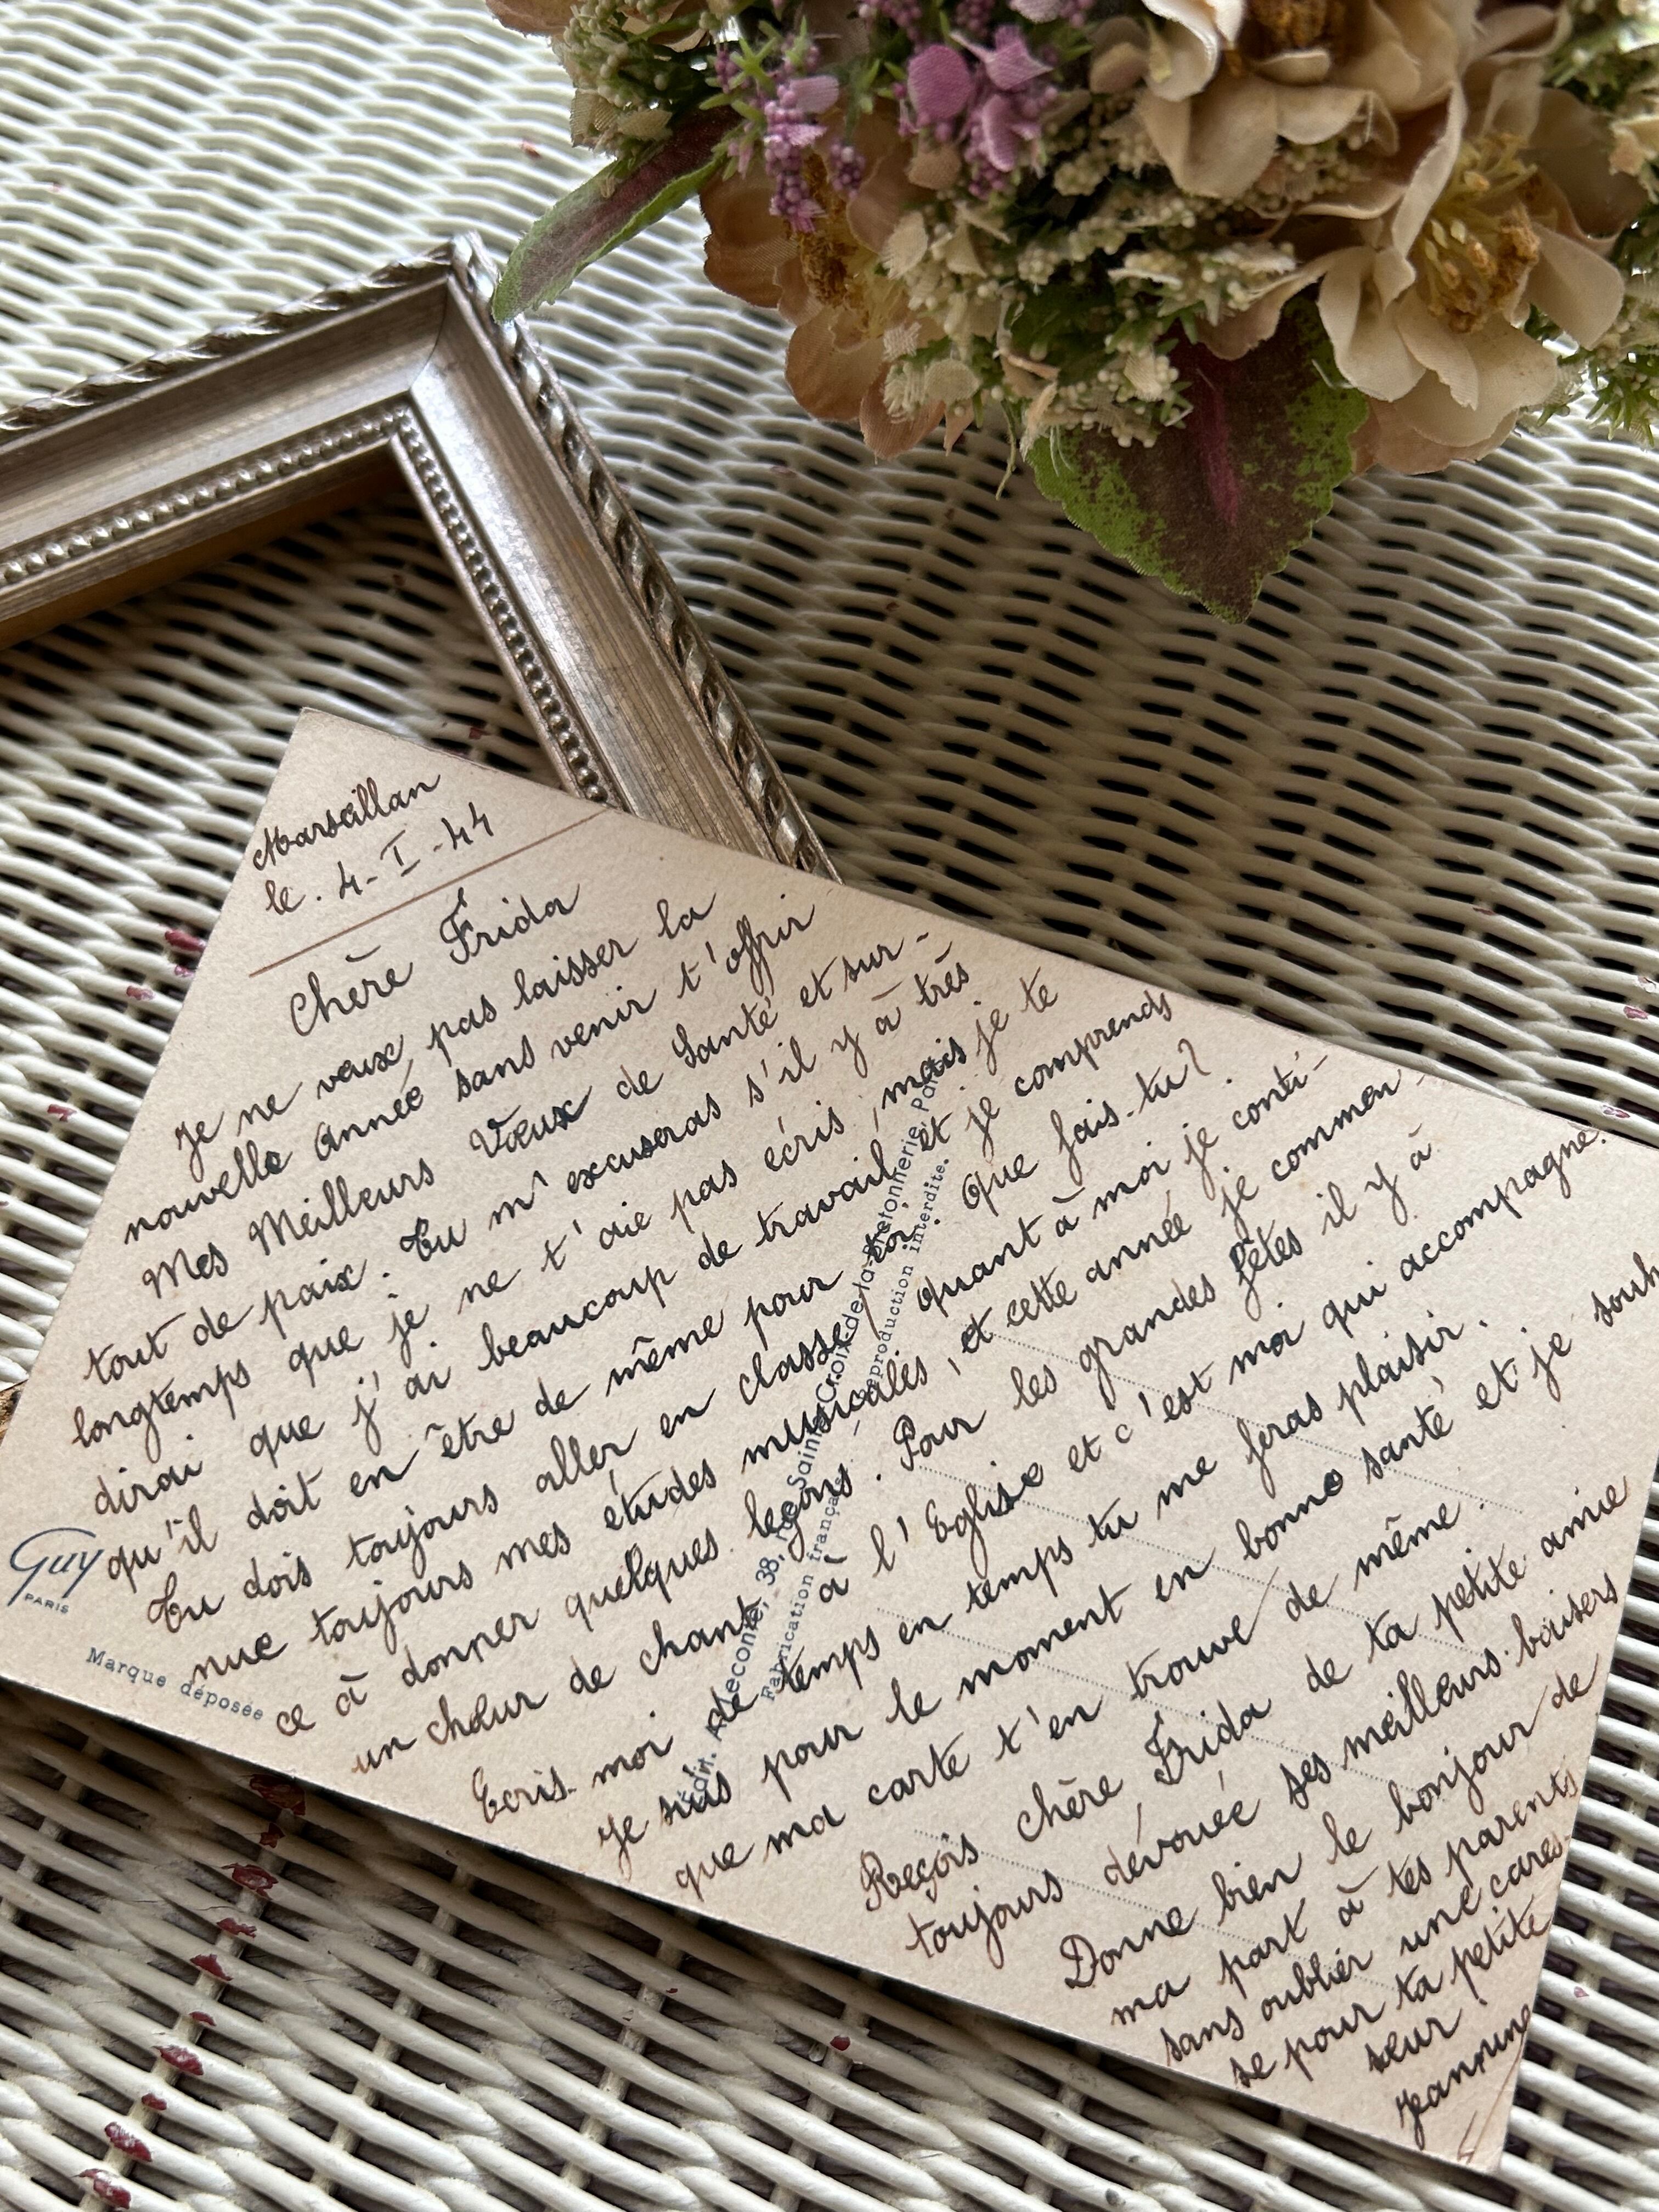 Marseillan
le. 4-I-44
Chère Frida
Je ne veux pas laisser la
nouvelle Année sans venir t'offrir
Mes Meilleurs Vœux de Santé et sur-
tout de paix. Tu m'excuseras s'il y à très
longtemps que je ne t'aie pas écris, mais je te
dirai que j'ai beaucoup de travail, et je comprends
qu'il doit en être de même pour toi. Que fais-tu?
Tu dois toujours aller en classe, quant à moi je conti-
nue toujours mes études musicales, et cette année je commen-
ce à donner quelques leçons. Pour les grandes fêtes il y à
un chœur de chant à l'Eglise et c'est moi qui accompagne.
Ecris-moi de temps en temps tu me feras plaisir.
Je suis pour le moment en bonne santé et je souh
que ma carte t'en trouve de même.
Reçois chère Frida de ta petite amie
toujours dévouée ses meilleurs baisers
Donne bien le bonjour de
ma part à tes parents
sans oublier une cares-
se pour ta petite
sœur.
Jeannine
Guy
PARIS
Marque déposée
Edit. A. Leconte, 38, rue Sainte-Croix-de-la-Bretonnerie, Paris
Fabrication française. Reproduction interdite.